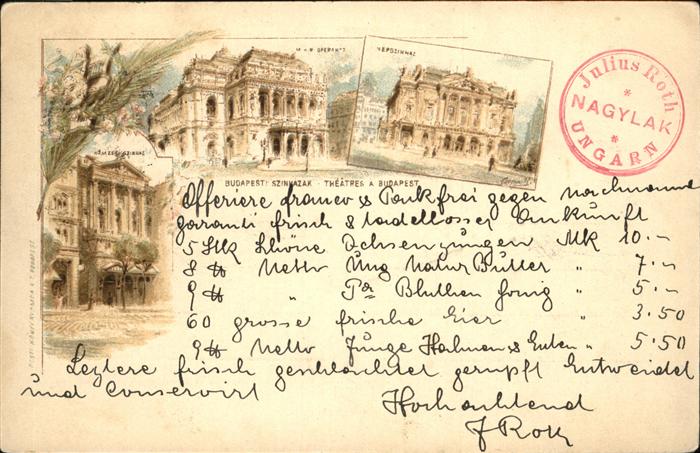 M. K. OPERAHÁZ
NÉPSZINHÁZ
NEMZETI SZINHÁZ
BUDAPESTI SZINHÁZAK - THÉÂTRES A BUDAPEST
Julius Roth
NAGYLAK
UNGARN
Offeriere franco & Pankfrei gegen nachnanme
garanti frisch & tadellosser Ankunft
5 Stk Schöne Ochsenzungen Mk 10.-
8 ℔ Netto Ung Natur Butter " 7.-
9 ℔ " Pa Bluthen honig " 5.-
60 grosse frische Eier " 3.50
9 ℔ Netto Junge & Enten " 5.50
Leztere frisch geschlachtet gerupft Entweidet
und Conservirt
Hochachtend
J Roth